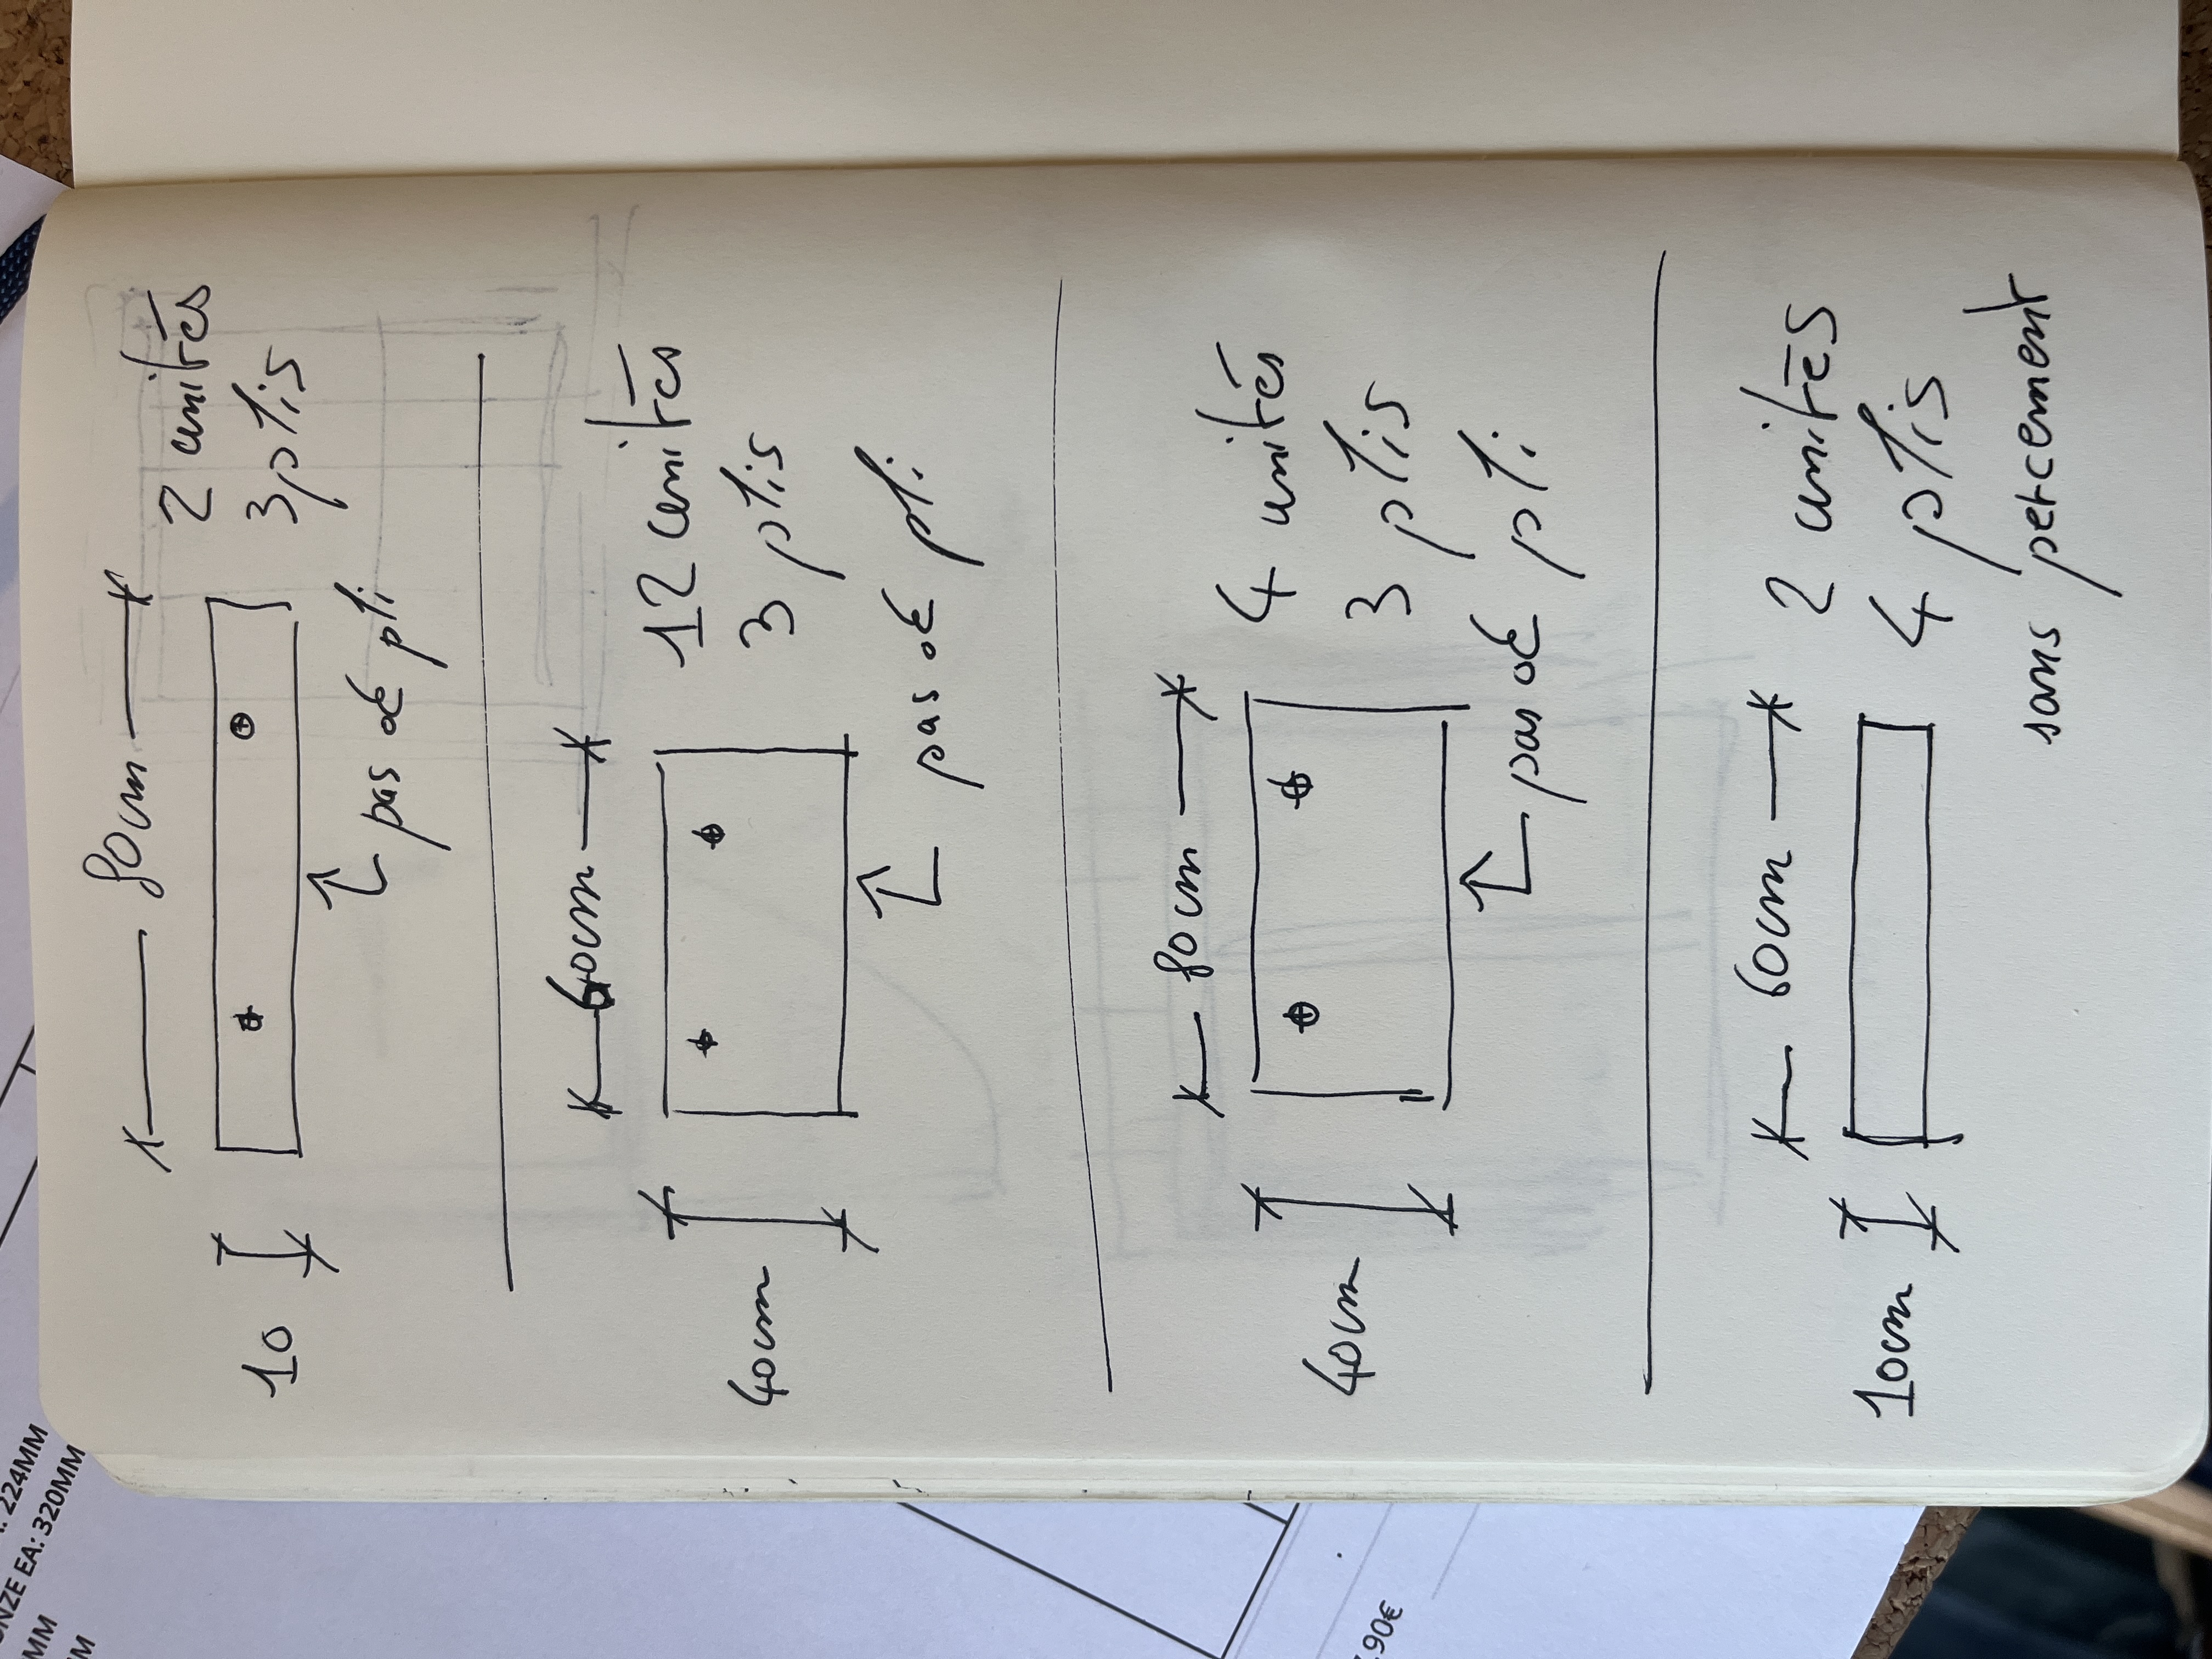 80cm
2 unités
3 plis
10
pas de pli
60cm
12 unités
3 plis
40cm
pas de pli
80cm
4 unités
3 plis
40cm
pas de pli
60cm
2 unités
4 plis
10cm
sans percement
224MM
NZE EA: 320MM
MM
M
,90€